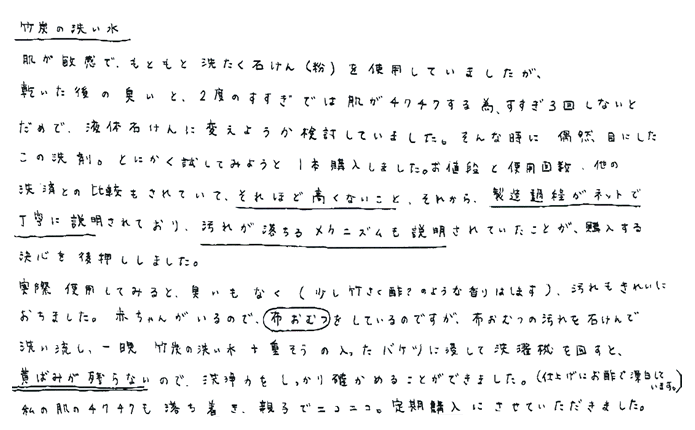 竹炭の洗い水
肌が敏感で、もともと洗たく石けん(粉)を使用していましたが、
乾いた後の臭いと、2度のすすぎでは肌がチクチクする為、すすぎ3回しないと
だめで、液体石けんに変えようか検討していました。そんな時に偶然目にした
この洗剤。とにかく試してみようと1本購入しました。お値段と使用回数、他の
洗濯との比較もされていて、それほど高くないこと、それから、製造過程がネットで
丁寧に説明されており、汚れが落ちるメカニズムも説明されていたことが、購入する
決心を後押ししました。
実際使用してみると、臭いもなく(少し竹さく酢?のような香りはします)、汚れもきれいに
おちました。赤ちゃんがいるので、布おむつをしているのですが、布おむつの汚れを石けんで
洗い流し、一晩 竹炭の洗い水+重そうの入ったバケツに浸して洗濯機を回すと、
黄ばみが残らないので、洗浄力をしっかり確かめることができました。(仕上げにお酢で漂白しています。)
私の肌のチクチクも落ち着き、親子でニコニコ。定期購入にさせていただきました。